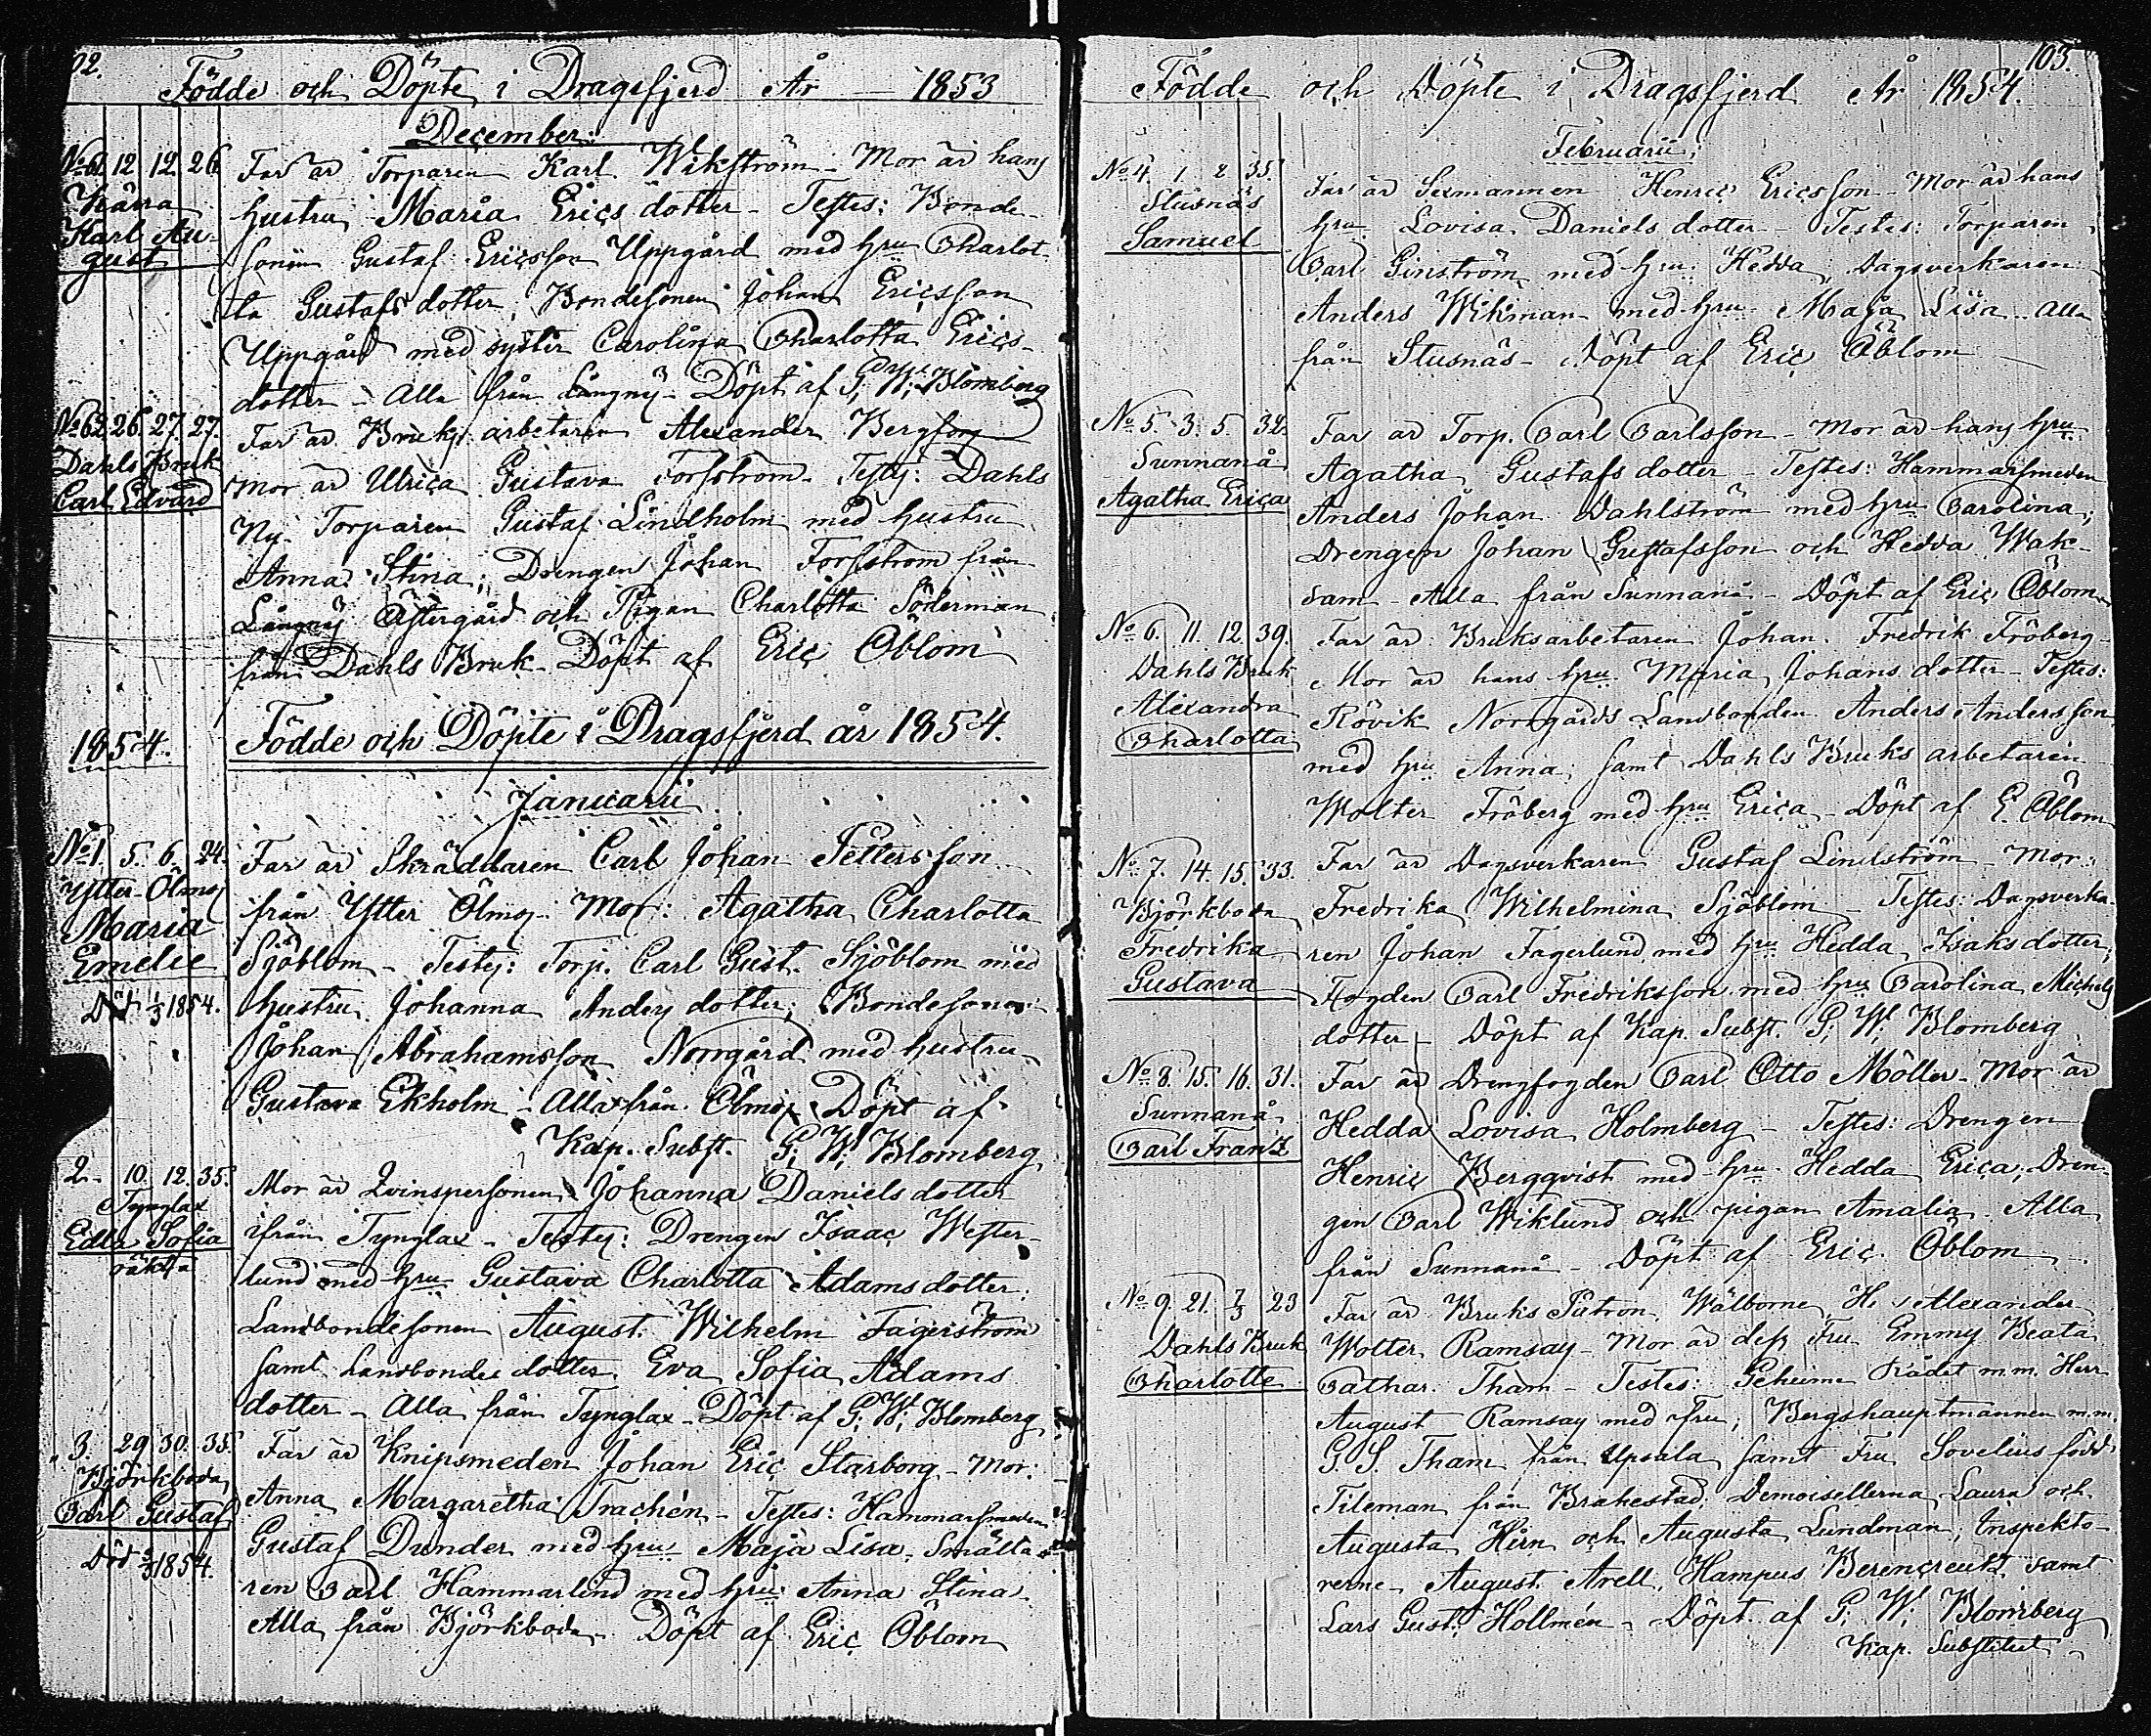 02.
Födde och Döpte i Dragsfjerd År 1853
December.
No 61. 12. 12. 26.
Kärra
Karl Au-
gust
Far är Torparen Karl Wikström - Mor är hans
hustru Maria Erics dotter - Testes: Bonde-
sonen Gustaf Ericsson Uppgård med hru Charlot-
ta Gustafs dotter, Bondesonen Johan Ericsson
Uppgård med syster Carolina Charlotta Erics-
dotter - Alla från Långnäs - Döpt af G. W. Blomberg
No 62. 26. 27. 27.
Dahls Bruk
Carl Edvard
Far är Bruks arbetaren Alexander Bergfors
Mor är Ulrica Gustava Forsström - Testes: Dahls
Ny Torparen Gustaf Lindholm med hustru
Anna Stina; Drengen Johan Forsström från
Långnäs Östergård och Pigan Charlotta Söderman
från Dahls Bruk - Döpt af Eric Öblom
1854.
Födde och Döpte i Dragsfjerd år 1854.
Januarii
No 1. 5. 6. 24.
Ytter-Ölmos
Maria
Emelie
Död 1/3 1854.
Far är Skräddaren Carl Johan Pettersson
från Ytter Ölmos - Mor: Agatha Charlotta
Sjöblom - Testes: Torp. Carl Gust. Sjöblom med
hustru Johanna Anders dotter; Bondesonen
Johan Abrahamsson Norrgård med hustru
Gustava Ekholm - Alla från Ölmos - Döpt af
Kap. Subst. G. W. Blomberg
2. - 10. 12. 35.
Tynglax
Edla Sofia
oäkta
Mor är Qvinspersonen Johanna Daniels dotter
ifrån Tynglax - Testes: Drengen Isaac Wester-
lund med hru Gustava Charlotta Adams dotter;
Landbondesonen August Wilhelm Fagerström
samt Landbonde dotter Eva Sofia Adams
dotter - Alla från Tynglax - Döpt af G. W. Blomberg
3. 29. 30. 35.
Björkboda
Carl Gustaf
Död 1854.
Far är Knipsmeden Johan Eric Starborg - Mor:
Anna Margaretha Trachén - Testes: Hammarsmeden
Gustaf Dunder med hru Maja Lisa, Smälta-
ren Carl Hammarlind med hru Anna Stina
Alla från Björkboda - Döpt af Eric Öblom
103.
Födde och Döpte i Dragsfjerd År 1854.
Februarii
No 4. 1. 2. 35.
Stusnäs
Samuel
Far är Sexmannen Henric Ericsson - Mor är hans
hru Lovisa Daniels dotter - Testes: Torparen
Carl Ginström med hru Hedda, Dagsverkaren
Anders Wikman med hru Maja Lisa - Alla
från Stusnäs - Döpt af Eric Öblom
No 5. 3. 5. 32.
Sunnanå
Agatha Erica
Far är Torp. Carl Carlsson - Mor är hans hru
Agatha Gustafs dotter - Testes: Hammarsmeden
Anders Johan Dahlström med hru Carolina;
Drengen Johan Gustafsson och Hedda Wak-
sam - Alla från Sunnanå - Döpt af Eric Öblom
No 6. 11. 12. 39.
Dahls Bruk
Alexandra
Charlotta
Far är Bruksarbetaren Johan Fredrik Fröberg -
Mor är hans hru Maria Johans dotter - Testes:
Rövik Norrgårds Landbonden Anders Andersson
med hru Anna; samt Dahls Bruks arbetaren
Wolter Fröberg med hru Erica - Döpt af E. Öblom
No 7. 14. 15. 33.
Björkboda
Fredrika
Gustava
Far är Dagsverkaren Gustaf Lindström - Mor:
Fredrika Wilhelmina Sjöblom - Testes: Dagsverka-
ren Johan Fagerlund med hru Hedda Isaks dotter;
Fogden Carl Fredriksson med hru Carolina Michels
dotter - Döpt af Kap. Subst. G. W. Blomberg
No 8. 15. 16. 31.
Sunnanå
Carl Frantz
Far är Drengfogden Carl Otto Möller - Mor är
Hedda Lovisa Holmberg - Testes: Drengen
Henric Bergqvist med hru Hedda Erica; Dren-
gen Carl Wiklund och pigan Amalia - Alla
från Sunnanå - Döpt af Eric Öblom
No 9. 21. 7/3 23
Dahls Bruk
Charlotte
Far är Bruks Patron Wälborne H. Alexander
Wolter Ramsay - Mor är dess Fru Emmy Beata
Cathar. Tham - Testes: Geheime Rådet m.m. Herr
August Ramsay med Fru, Bergshauptmannen m.m.
G. S. Tham från Upsala samt Fru Sovelius född
Tileman från Brahestad; Demoisellerna Laura och
Augusta Hirn och Augusta Lundman; Inspekto-
rerne August Arell, Hampus Berencreutz samt
Lars Gust. Hollmén - Döpt af G. W. Blomberg
Kap. Substitut